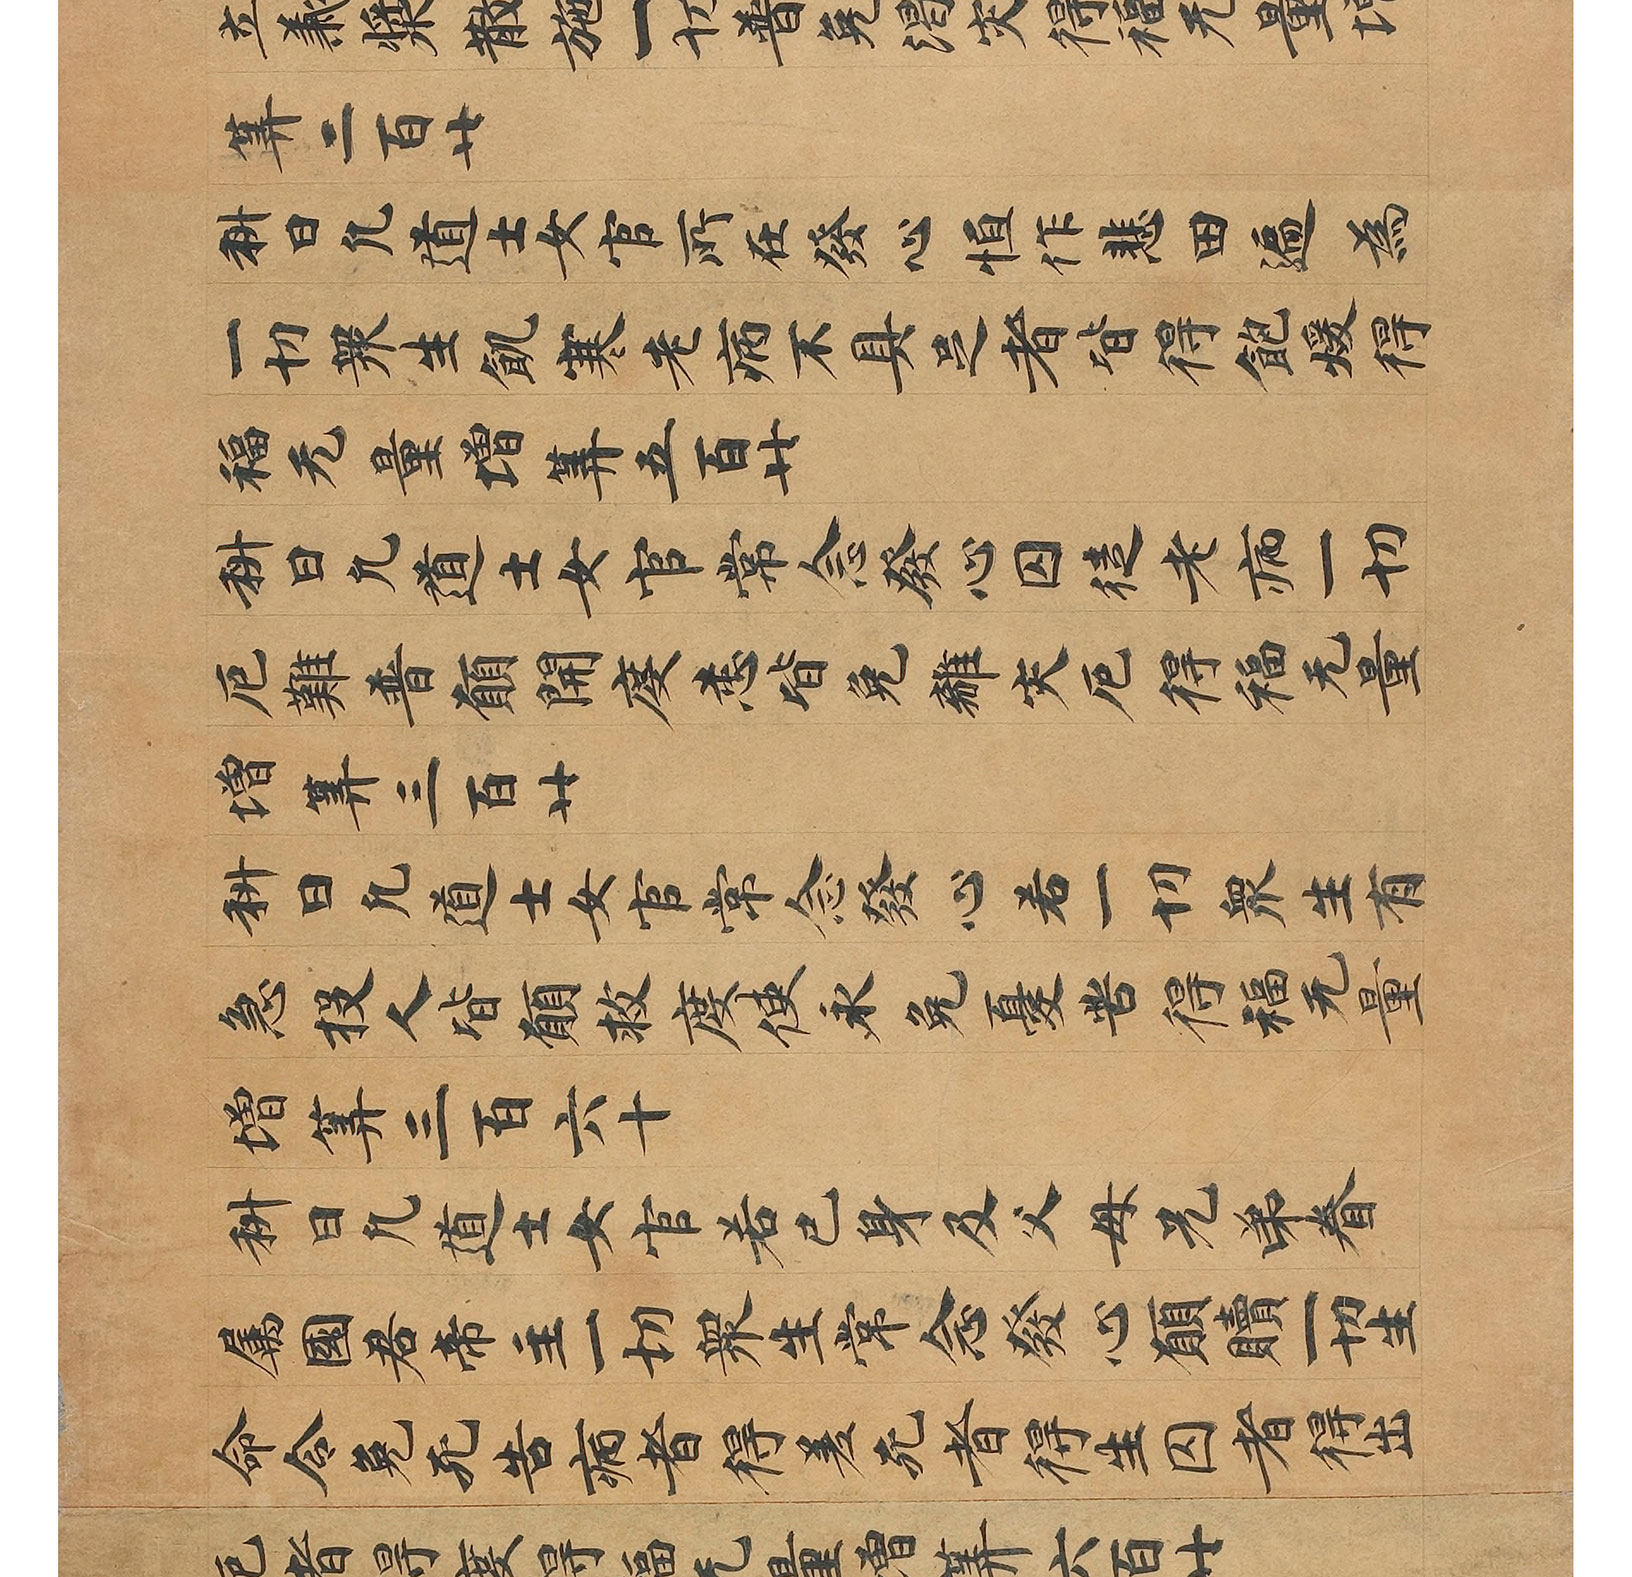 立義漿散施一切普免渴灾得福无量增
算二百廿
科曰凡道士女官所在發心恒作悲田溫為
一切衆生飢寒老病不具足者皆得飽煖得
福无量增算五百廿
科曰凡道士女官常念發心囚徒老病一切
厄難普願開度悉皆免離灾厄得福无量
增算三百廿
科曰凡道士女官常念發心若一切衆生有
急投人皆願救度使求免憂苦得福无量
增算三百六十
科曰凡道士女官若己身及父母兄弟眷
属國君帝主一切衆生常念發心願贖一切生
命令免死苦病者得差死者得生囚者得出
厄者得度得福无量增算六百廿